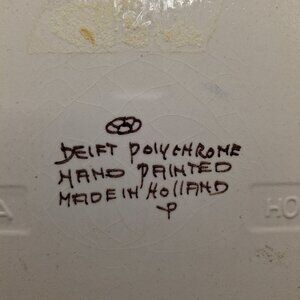 DELFT POLYCHROME
HAND PAINTED
MADE IN HOLLAND
P
A
HO